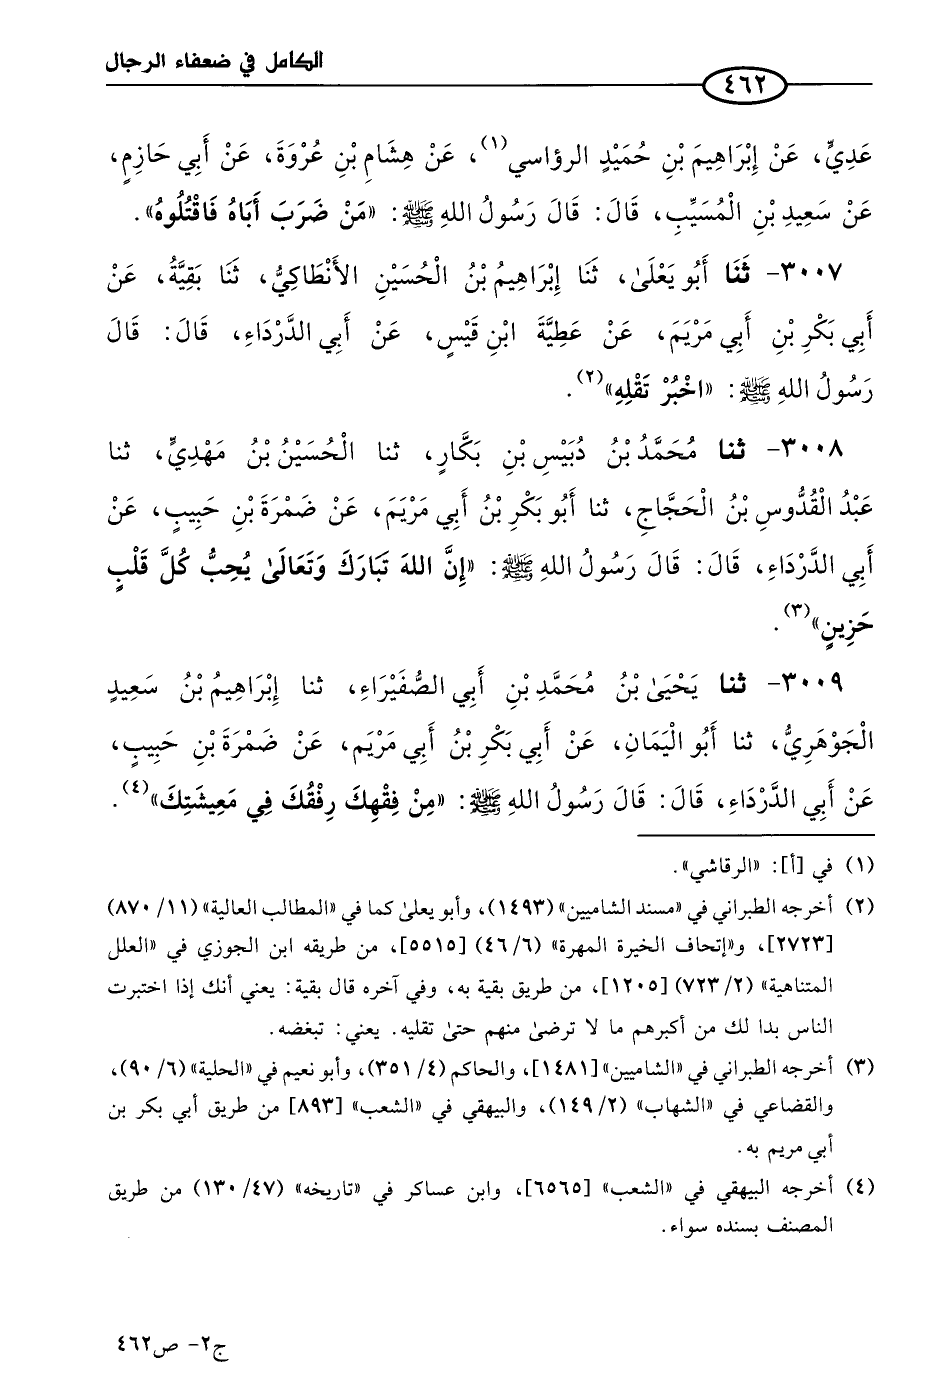 الكامل في ضعفاء الرجال
٤٦٢
عَدِيٍّ، عَنْ إِبْرَاهِيمَ بْنِ حُمَيْدٍ الرؤاسي(١)، عَنْ هِشَامِ بْنِ عُرْوَةَ، عَنْ أَبِي حَازِمٍ،
عَنْ سَعِيدِ بْنِ الْمُسَيِّبِ، قَالَ: قَالَ رَسُولُ اللهِ ﷺ: «مَنْ ضَرَبَ أَبَاهُ فَاقْتُلُوهُ».
٣٠٠٧- ثَنَا أَبُو يَعْلَىٰ، ثَنَا إِبْرَاهِيمُ بْنُ الْحُسَيْنِ الأَنْطَاكِيُّ، ثَنَا بَقِيَّةُ، عَنْ
أَبِي بَكْرِ بْنِ أَبِي مَرْيَمَ، عَنْ عَطِيَّةَ ابْنِ قَيْسٍ، عَنْ أَبِي الدَّرْدَاءِ، قَالَ: قَالَ
رَسُولُ اللهِ ﷺ: «اخْبُرْ تَقْلِهِ»(٢).
٣٠٠٨- ثنا مُحَمَّدُ بْنُ دُبَيْسِ بْنِ بَكَّارٍ، ثنا الْحُسَيْنُ بْنُ مَهْدِيٍّ، ثنا
عَبْدُ الْقُدُّوسِ بْنُ الْحَجَّاجِ، ثنا أَبُو بَكْرِ بْنُ أَبِي مَرْيَمَ، عَنْ ضَمْرَةَ بْنِ حَبِيبٍ، عَنْ
أَبِي الدَّرْدَاءِ، قَالَ: قَالَ رَسُولُ اللهِ ﷺ: «إِنَّ اللهَ تَبَارَكَ وَتَعَالَىٰ يُحِبُّ كُلَّ قَلْبٍ
حَزِينٍ»(٣).
٣٠٠٩- ثنا يَحْيَىٰ بْنُ مُحَمَّدِ بْنِ أَبِي الصُّفَيْرَاءِ، ثنا إِبْرَاهِيمُ بْنُ سَعِيدٍ
الْجَوْهَرِيُّ، ثنا أَبُو الْيَمَانِ، عَنْ أَبِي بَكْرِ بْنُ أَبِي مَرْيَم، عَنْ ضَمْرَةَ بْنِ حَبِيبٍ،
عَنْ أَبِي الدَّرْدَاءِ، قَالَ: قَالَ رَسُولُ اللهِ ﷺ: «مِنْ فِقْهِكَ رِفْقُكَ فِي مَعِيشَتِكَ»(٤).
(١) في [أ]: «الرقاشي».
(٢) أخرجه الطبراني في «مسند الشاميين» (١٤٩٣)، وأبو يعلىٰ كما في «المطالب العالية» (١١/ ٨٧٠)
[٢٧٢٣]، و«إتحاف الخيرة المهرة» (٦/ ٤٦) [٥٥١٥]، من طريقه ابن الجوزي في «العلل
المتناهية» (٢/ ٧٢٣) [١٢٠٥]، من طريق بقية به، وفي آخره قال بقية: يعني أنك إذا اختبرت
الناس بدا لك من أكبرهم ما لا ترضىٰ منهم حتىٰ تقليه. يعني: تبغضه.
(٣) أخرجه الطبراني في «الشاميين» [١٤٨١]، والحاكم (٤/ ٣٥١)، وأبو نعيم في «الحلية» (٦/ ٩٠)،
والقضاعي في «الشهاب» (٢/ ١٤٩)، والبيهقي في «الشعب» [٨٩٣] من طريق أبي بكر بن
أبي مريم به.
(٤) أخرجه البيهقي في «الشعب» [٦٥٦٥]، وابن عساكر في «تاريخه» (٤٧/ ١٣٠) من طريق
المصنف بسنده سواء.
ج٢- ص٤٦٢